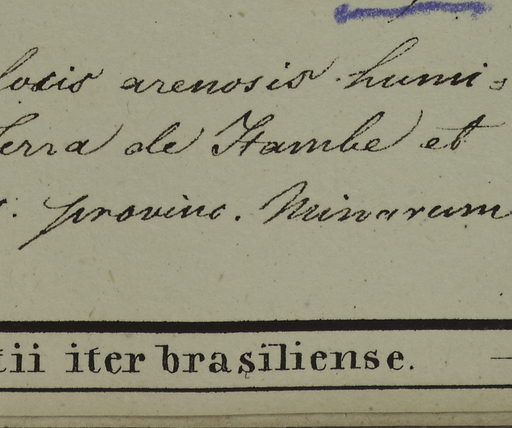 locis arenosis humi-
Serra de Itambe et
provinc. Minarum
tii iter brasiliense.